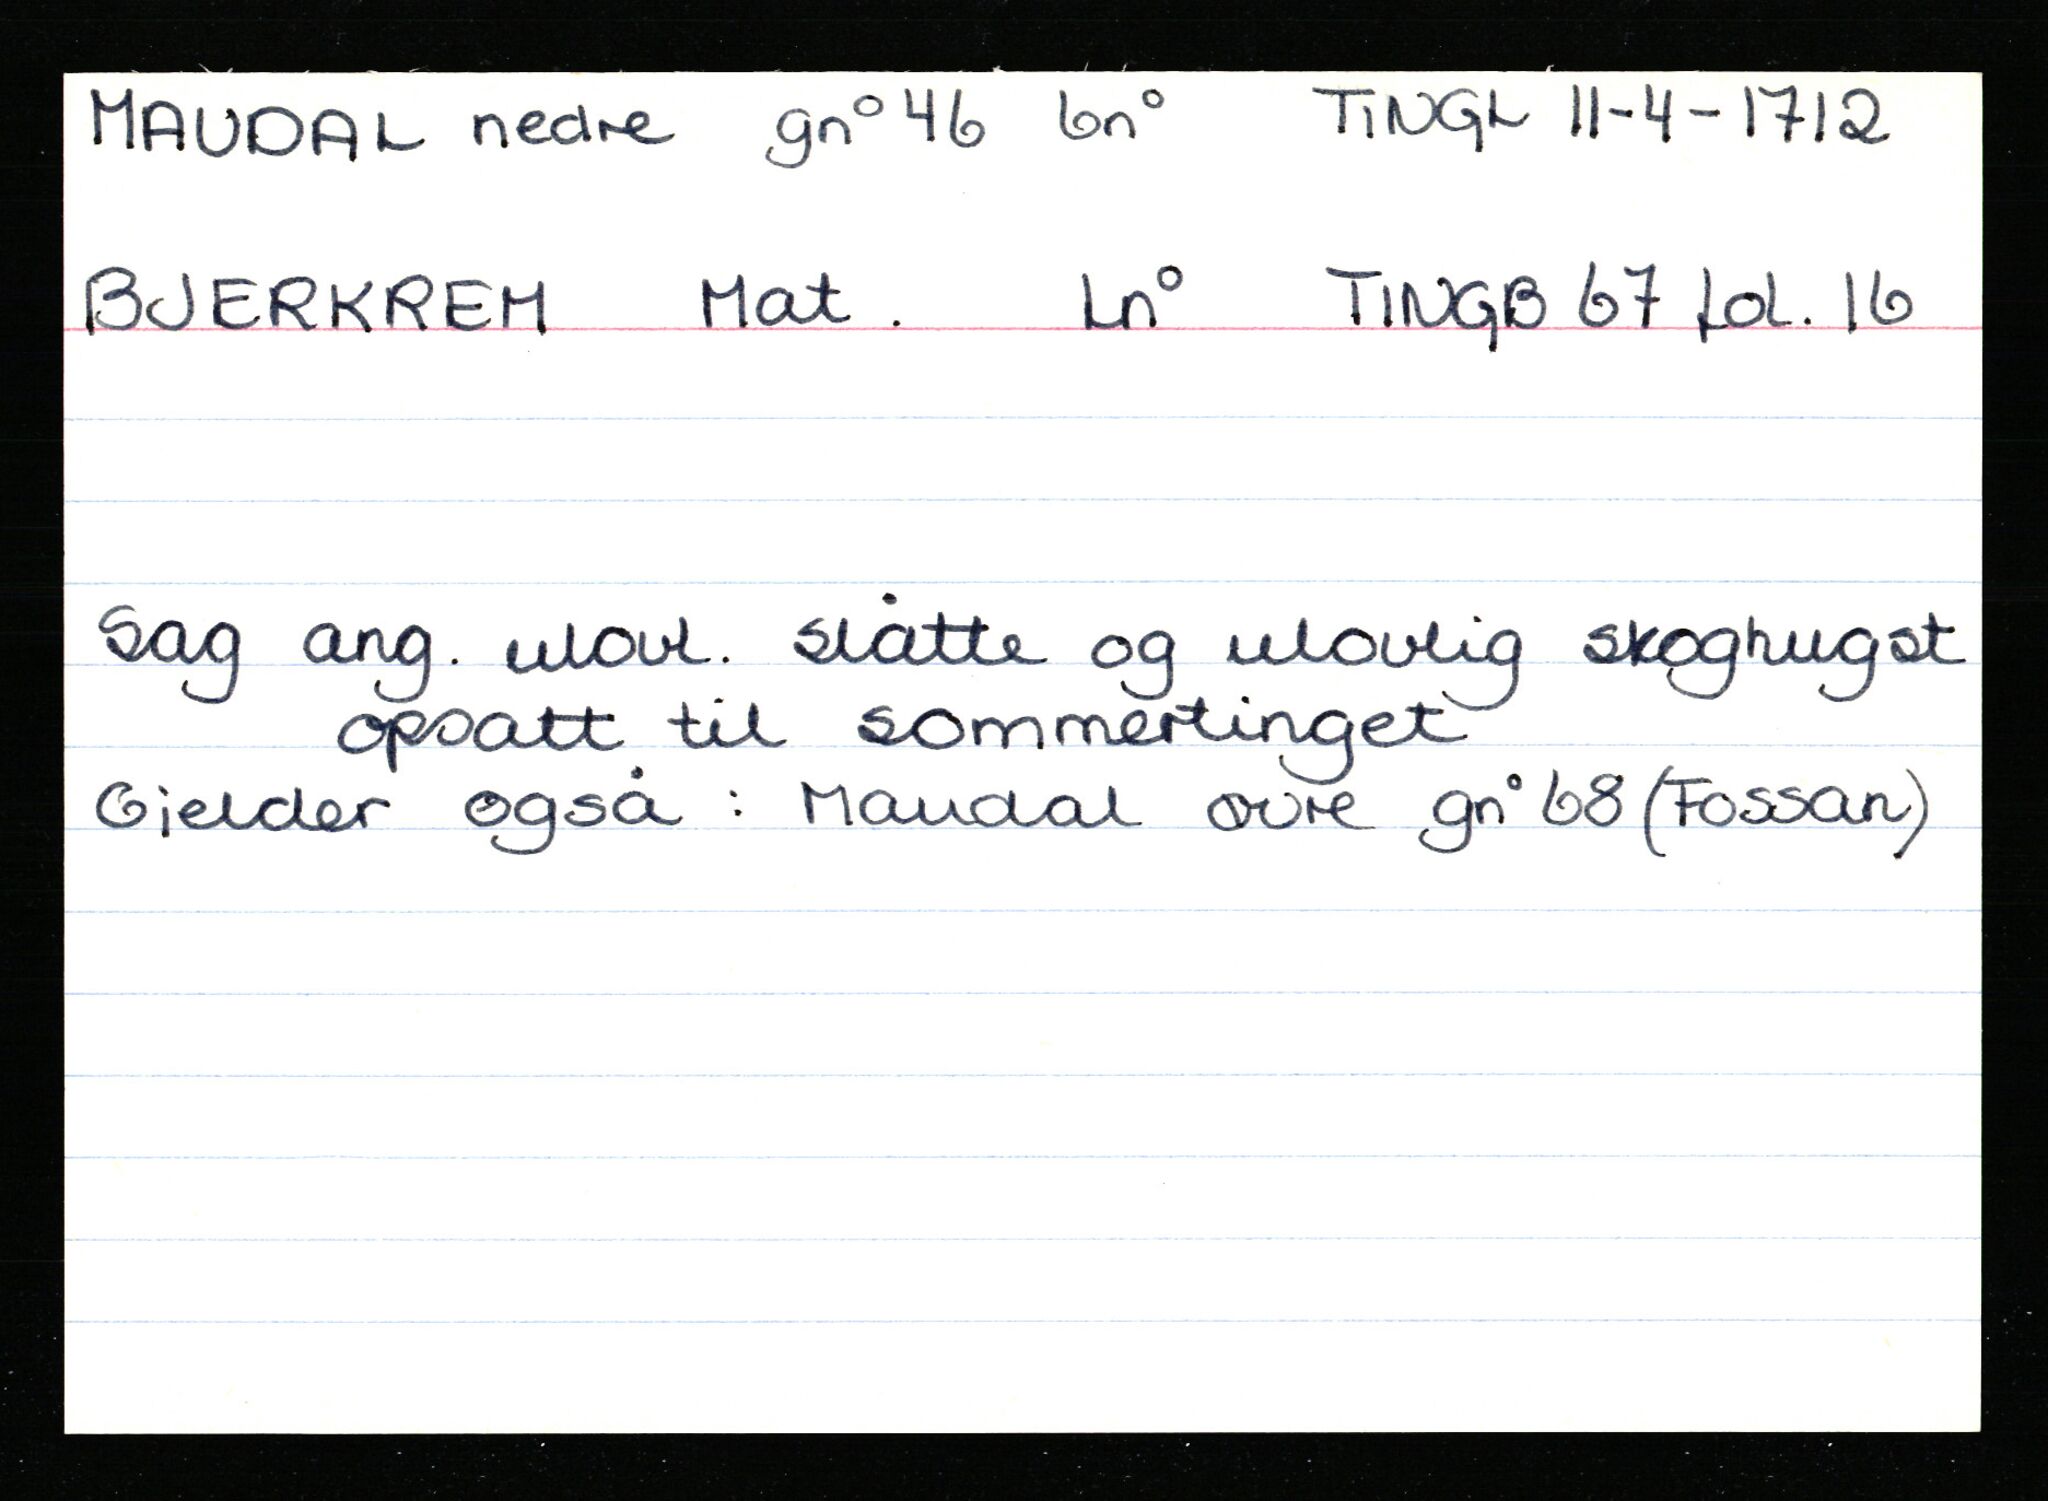 MAUDAL nedre gn° 46 bn° TINGL 11-4-1712
BJERKREM Mat. Ln° TINGB 67 fol. 16
Sag ang. ulovl. slåtte og ulovlig skoghugst
opsatt til sommertinget
Gjelder også : Maudal øvre gn° 68 (Fossan)